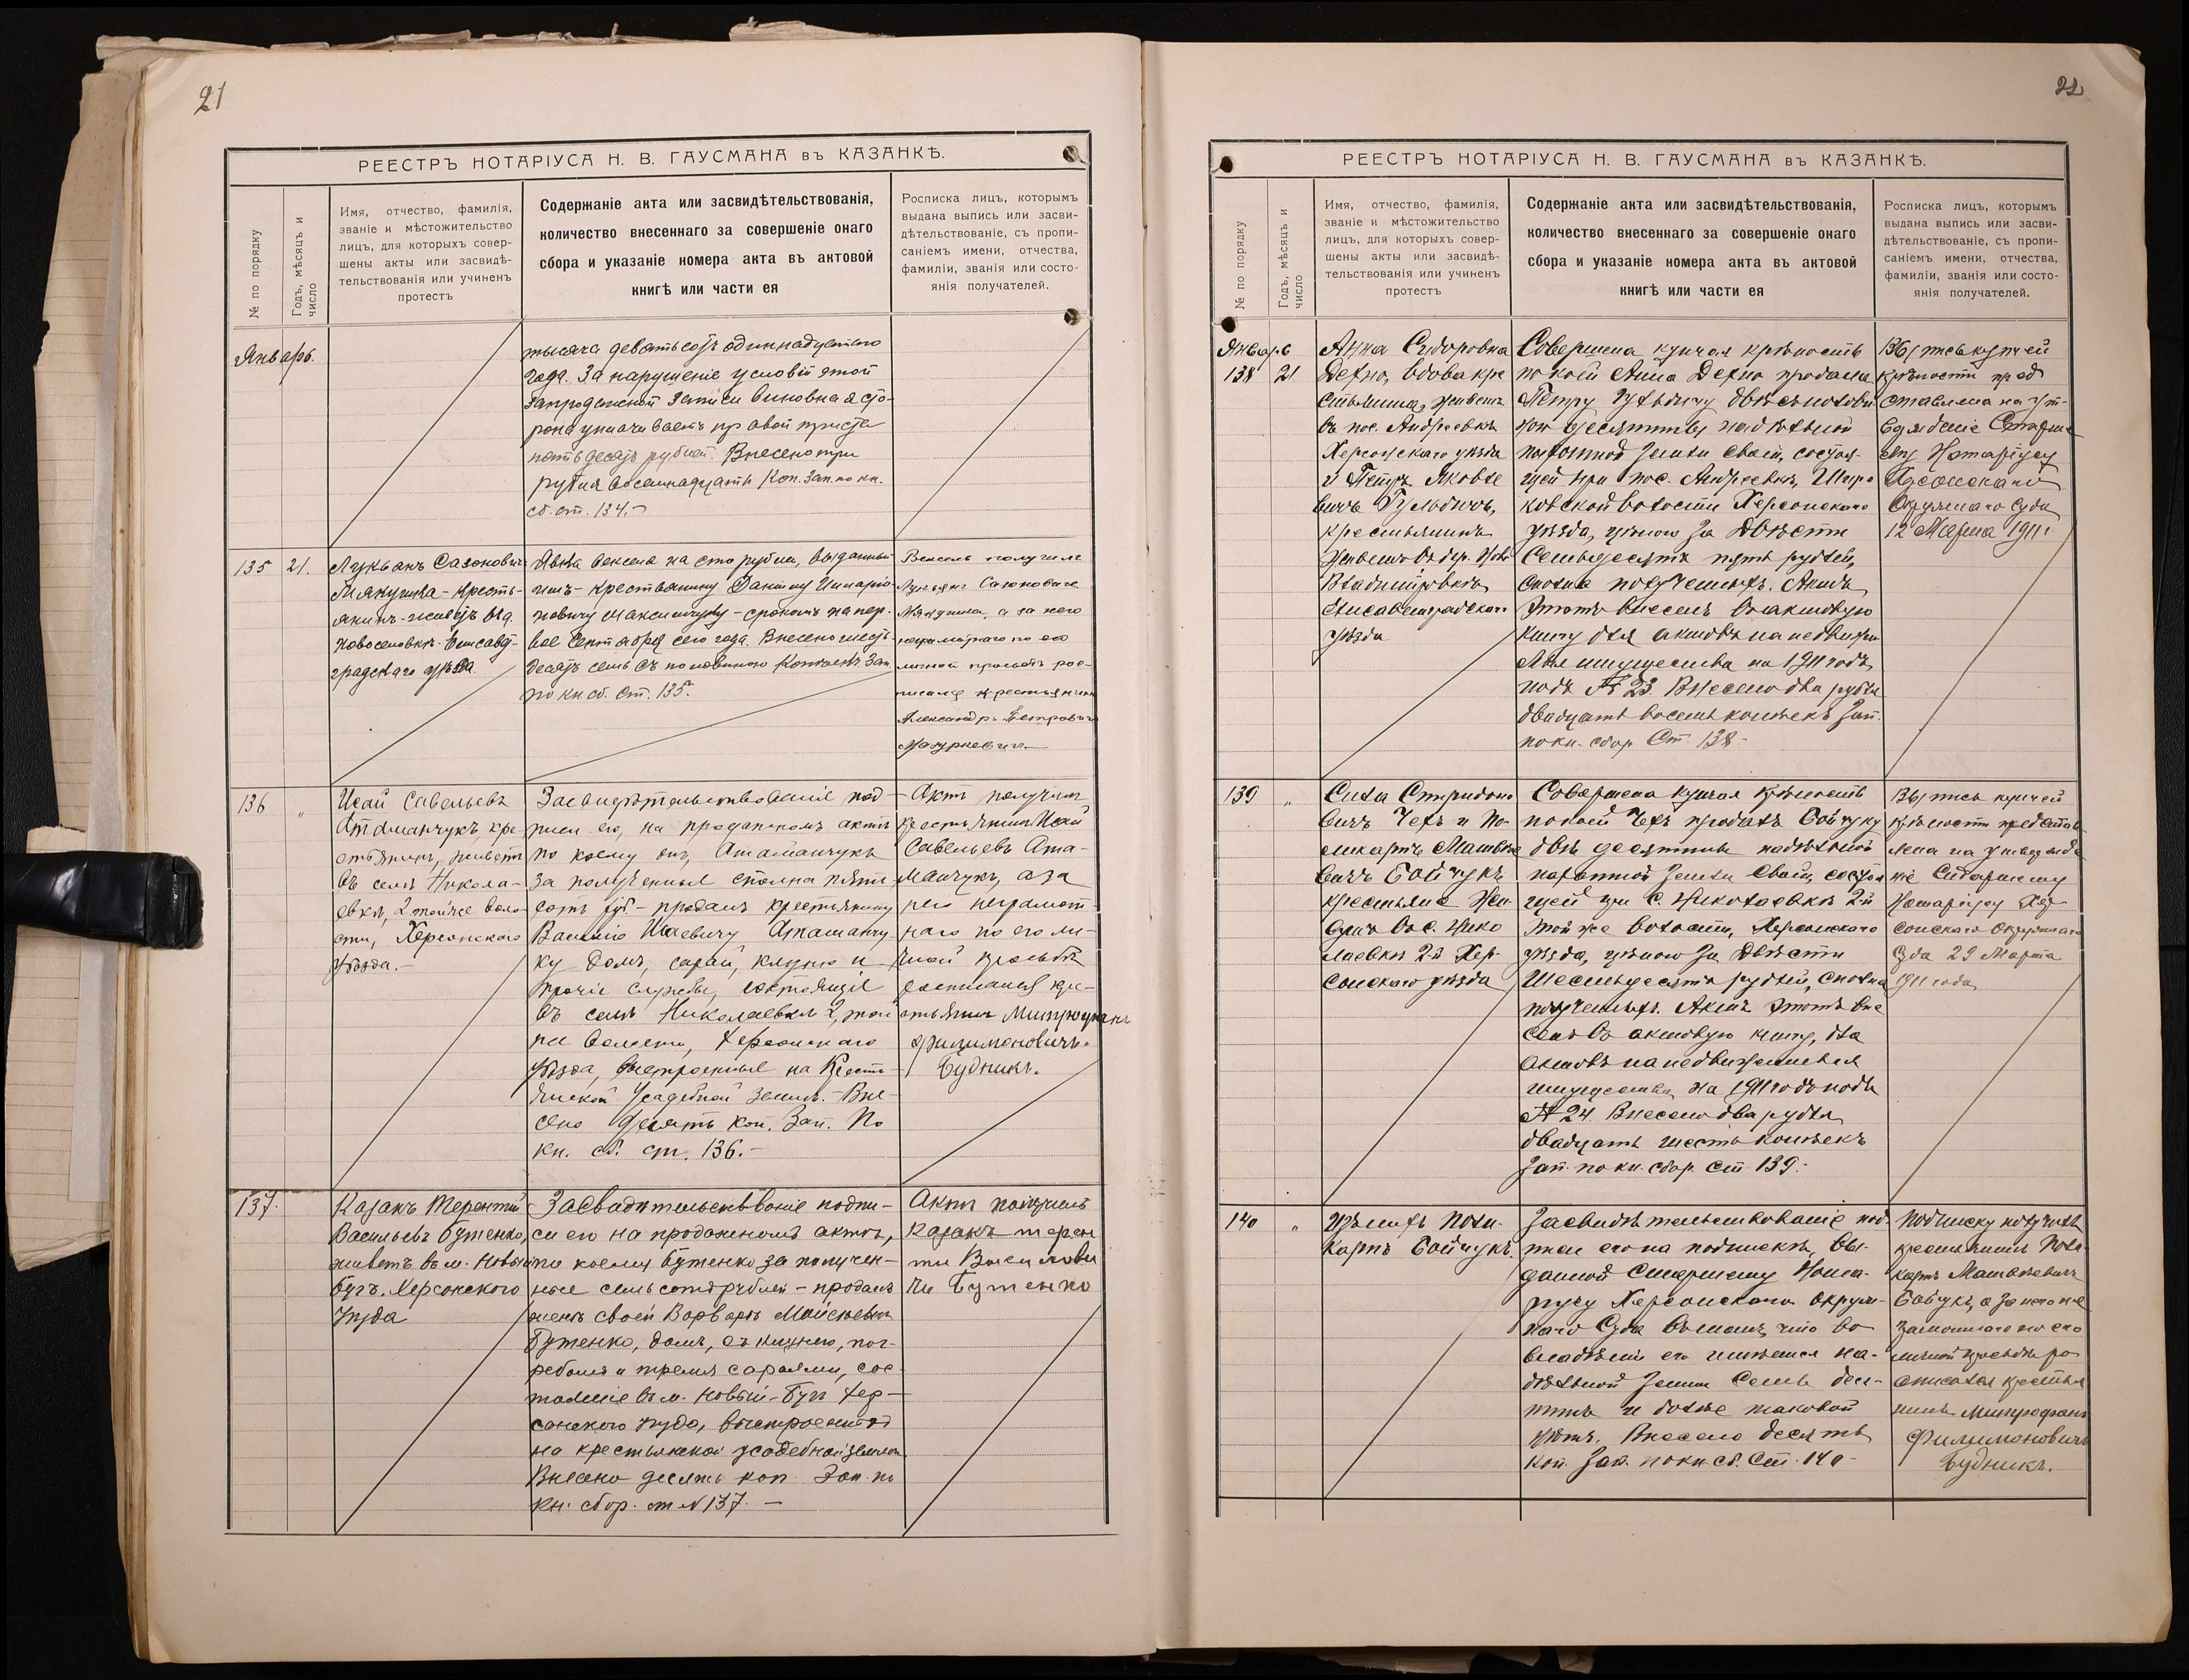 21
РЕЕСТРЪ НОТАРІУСА Н. В. ГАУСМАНА въ КАЗАНКѢ.
№ по порядку
Годъ, мѣсяцъ и
число
Имя, отчество, фамилія,
званіе и мѣстожительство
лицъ, для которыхъ совер-
шены акты или засвидѣ-
тельствованія или учиненъ
протестъ
Содержаніе акта или засвидѣтельствованія,
количество внесеннаго за совершеніе онаго
сбора и указаніе номера акта въ актовой
книгѣ или части ея
Росписка лицъ, которымъ
выдана выпись или засви-
дѣтельствованіе, съ пропи-
саніемъ имени, отчества,
фамиліи, званія или состо-
янія получателей.
Январь.
тысяча девятьсотъ одиннадцатого
года. За нарушеніе условій этой
запродажной записи виновная сто-
рона уплачиваетъ правой триста
пятьдесятъ рублей. Внесено три
рубля восемнадцать коп. Зап. по кн.
сб. ст. 134.-
135 21.
Лукьянъ Сазоновичъ
Мякушка - кресть-
янинъ - живетъ въ д.
Новоселовкѣ - Елисавет-
градскаго уѣзда.
Явка векселя на сто рублей, выданный
имъ - крестьянину Данилу
Максимчуку - срокомъ на пер-
вое Сентября сего года. Внесено шесть-
десятъ семь съ половиною копѣекъ Зап.
по кн. сб. ст. 135.
Вексель получилъ
Лукьянъ Сазоновичъ
Мякушка, а за него
неграмотнаго по его
личной просьбѣ рос-
писался крестьянинъ
Александръ Петровичъ
Мазуркевичъ
136 "
Исай Савельевъ
Атаманчукъ, кре-
стьянинъ, живетъ
въ селѣ Никола-
евкѣ, 2 той же воло-
сти, Херсонскаго
уѣзда.-
Засвидѣтельствованіе под-
писи его, на продажномъ актѣ
по коему онъ, Атаманчукъ
за полученныя сполна пять
сотъ руб - продалъ крестьянину
Василію Исаевичу Атаманчу-
ку домъ, сарай, клуню и
прочія службы, состоящія
въ селѣ Николаевкѣ 2, той
же волости, Херсонскаго
уѣзда, выстроенныя на Кресть-
янской Усадебной землѣ. - Вне-
сено десять коп. Зап. По
кн. сб. ст. 136.-
Актъ получилъ
крестьянинъ Исай
Савельевъ Ата-
манчукъ, а за
него неграмот-
наго по его ли-
чной просьбѣ
росписался кре-
стьянинъ Митрофанъ
Филимоновичъ
Будникъ.
137.
Казакъ Терентій
Васильевъ Бутенко,
живетъ въ м. Новый
Бугъ, Херсонского
уѣзда
Засвидѣтельствованіе подпи-
си его на продажномъ актѣ,
по коему Бутенко за получен-
ные семьсотъ рублей - продалъ
женѣ своей Варварѣ Мойсеевнѣ
Бутенко, домъ, съ кухнею, пог-
ребомъ и тремя сараями, сос-
тоящіе въ м. Новый-Бугъ Хер-
сонского уѣзда, выстроенный
на крестьянской усадебной землѣ
Внесено десять коп. Зап. по
кн. сбор. ст № 137. -
Актъ получилъ
Казакъ терен
ти Васи лови
чъ Бутенко
22
РЕЕСТРЪ НОТАРІУСА Н. В. ГАУСМАНА въ КАЗАНКѢ.
№ по порядку
Годъ, мѣсяцъ и
число
Имя, отчество, фамилія,
званіе и мѣстожительство
лицъ, для которыхъ совер-
шены акты или засвидѣ-
тельствованія или учиненъ
протестъ
Содержаніе акта или засвидѣтельствованія,
количество внесеннаго за совершеніе онаго
сбора и указаніе номера акта въ актовой
книгѣ или части ея
Росписка лицъ, которымъ
выдана выпись или засви-
дѣтельствованіе, съ пропи-
саніемъ имени, отчества,
фамиліи, званія или состо-
янія получателей.
Январь
138 21
Анна Сидоровна
Дехно, вдова кре
стьянина, живетъ
въ пос. Андреевкѣ
Херсонскаго уѣзда
и Петръ Яковле
вичъ Гульдичъ,
крестьянинъ
живетъ въ дер. Ново
Владимировкѣ
Елисаветградскаго
уѣзда
Совершена купчая крѣпость
по коей Анна Дехно продала
Петру Гульдичу двѣ съ полови
ною десятины надѣльной
пахотной земли своей, состоя-
щей при пос. Андреевкѣ, Широ-
ковской волости Херсонскаго
уѣзда, цѣною за двѣсти
семьдесятъ пять рублей,
сполна полученныхъ. Актъ
этотъ внесенъ въ актовую
книгу для актовъ на недвижи
мыя имущества на 1911 годъ
подъ № 23. Внесено два рубля
двадцать восемь копѣекъ Зап.
по кн. сбор Ст. 138.-
Выпись купчей
крѣпости пред
ставлена на ут-
вержденіе Старше
му Нотаріусу
Херсонскаго
Окружнаго Суда
12 Марта 1911 г.
139 "
Сила Спиридоно
вичъ Чехъ и По-
ликарпъ Матвѣе
вичъ Бойчукъ
крестьяне жи-
вутъ въ с. Нико
лаевкѣ 2-й Хер-
сонскаго уѣзда
Совершена купчая крѣпость
по коей Чехъ продалъ Бойчуку
двѣ десятины надѣльной
пахатной земли своей, состоя
щей при с. Николаевкѣ 2-й
той же волости, Херсонского
уѣзда, цѣною за двѣсти
шестьдесятъ рублей, сполна
полученныхъ. Актъ этотъ вне
сенъ въ актовую книгу, для
актовъ на недвижимыя
имущества, на 1911 годъ подъ
№ 24. Внесено два рубля
двадцать шесть копѣекъ
Зап. по кн. сбор. ст. 139.-
Выпись купчей
крѣпости представ
лена на утвержде
ніе Старшему
Нотаріусу Хер
сонскаго Окружнаго
Суда 29 Марта
1911 года
140 "
Поли-
карпъ Бойчукъ.
Засвидѣтельствованіе под-
писи его на подпискѣ, вы-
данной Старшему Нота-
ріусу Херсонскаго Окруж-
наго Суда въ томъ, что во
владѣніи его имѣется на-
дѣльной земли семь деся-
тинъ и болѣе таковой
нѣтъ. Внесено десять
коп. Зап. по кн сб. Ст. 140-
Подписку получилъ
крестьянинъ Поли-
карпъ Матвѣевичъ
Бойчукъ, а за него не
грамотнаго по его
личной просьбѣ ро
списался крестья
нинъ Митрофанъ
Филимоновичъ
Будникъ.